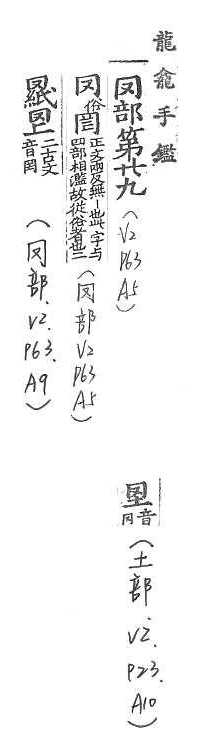 龍龕手鑑
冈部第廿九(V2 P63 A5)
冈俗 正文兩反無一也此字与罒部相濫故從俗者也二(冈部 V2 P63 A5)
二古文音罔(冈部、V2、P63、A9)
音冈(土部、V2、P23、A10)